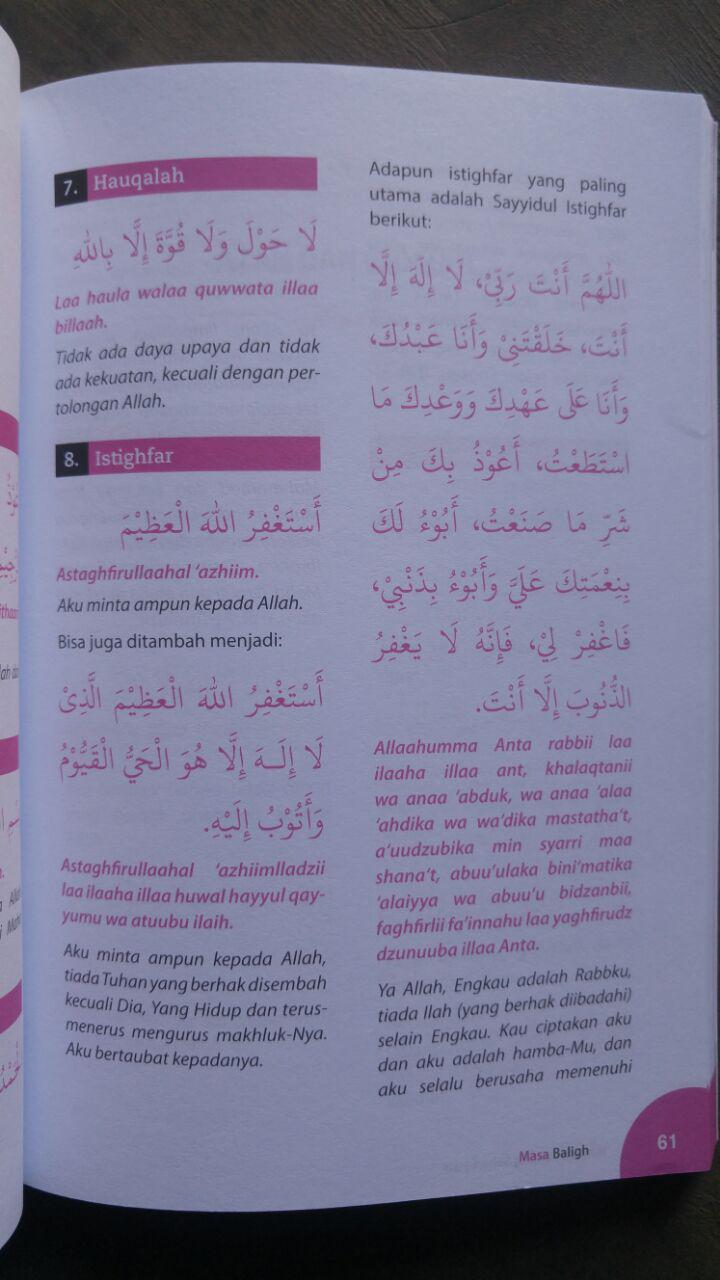 7. Hauqalah
لَا حَوْلَ وَلَا قُوَّةَ إِلَّا بِاللهِ
Laa haula walaa quwwata illaa
billaah.
Tidak ada daya upaya dan tidak
ada kekuatan, kecuali dengan per-
tolongan Allah.
8. Istighfar
أَسْتَغْفِرُ اللهَ الْعَظِيْمَ
Astaghfirullaahal ‘azhiim.
Aku minta ampun kepada Allah.
Bisa juga ditambah menjadi:
أَسْتَغْفِرُ اللهَ الْعَظِيْمَ الَّذِيْ
لَا إِلَـهَ إِلَّا هُوَ الْحَيُّ الْقَيُّوْمُ
وَأَتُوْبُ إِلَيْهِ.
Astaghfirullaahal ‘azhiimlladzii
laa ilaaha illaa huwal hayyul qay-
yumu wa atuubu ilaih.
Aku minta ampun kepada Allah,
tiada Tuhan yang berhak disembah
kecuali Dia, Yang Hidup dan terus-
menerus mengurus makhluk-Nya.
Aku bertaubat kepadanya.
Adapun istighfar yang paling
utama adalah Sayyidul Istighfar
berikut:
اللّٰهُمَّ أَنْتَ رَبِّيْ، لَا إِلَهَ إِلَّا
أَنْتَ، خَلَقْتَنِيْ وَأَنَا عَبْدُكَ،
وَأَنَا عَلَى عَهْدِكَ وَوَعْدِكَ مَا
اسْتَطَعْتُ، أَعُوْذُ بِكَ مِنْ
شَرِّ مَا صَنَعْتُ، أَبُوْءُ لَكَ
بِنِعْمَتِكَ عَلَيَّ وَأَبُوْءُ بِذَنْبِيْ،
فَاغْفِرْ لِيْ، فَإِنَّهُ لَا يَغْفِرُ
الذُّنُوبَ إِلَّا أَنْتَ.
Allaahumma Anta rabbii laa
ilaaha illaa ant, khalaqtanii
wa anaa ‘abduk, wa anaa ‘alaa
‘ahdika wa wa’dika mastatha’t,
a’uudzubika min syarri maa
shana’t, abuu’ulaka bini’matika
‘alaiyya wa abuu’u bidzanbii,
faghfirlii fa’innahu laa yaghfirudz
dzunuuba illaa Anta.
Ya Allah, Engkau adalah Rabbku,
tiada Ilah (yang berhak diibadahi)
selain Engkau. Kau ciptakan aku
dan aku adalah hamba-Mu, dan
aku selalu berusaha memenuhi
Masa Baligh 61